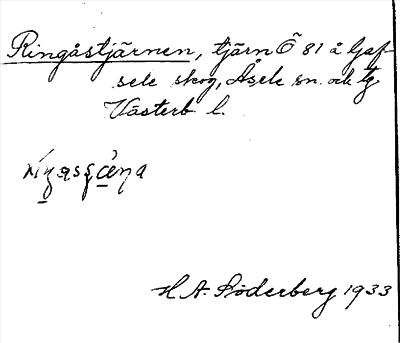 Ringåstjärnen, tjärn Ö 81 å Gaf-
sele skog, Åsele sn. och tg
Västerb l.
H. A. Söderberg 1933